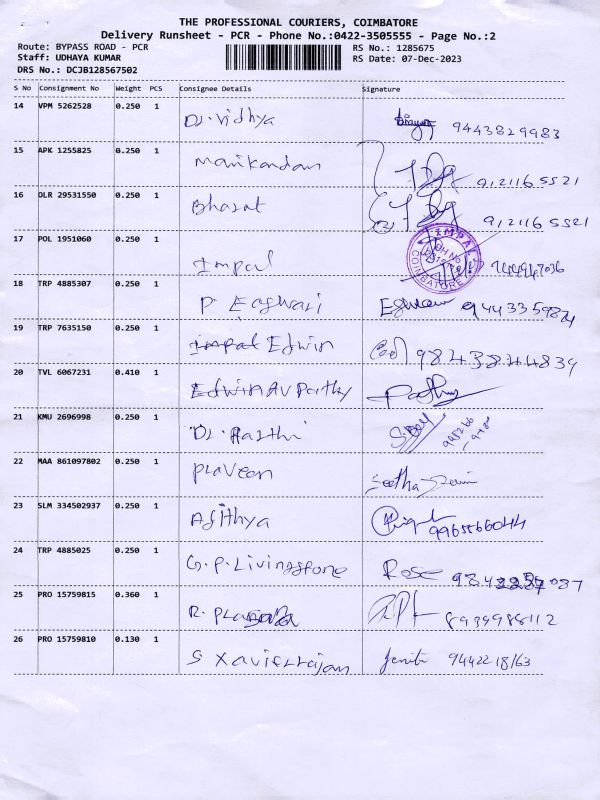 THE PROFESSIONAL COURIERS, COIMBATORE
Delivery Runsheet - PCR - Phone No.:0422-3505555 - Page No.:2
Route: BYPASS ROAD - PCR RS No.: 1285675
Staff: UDHAYA KUMAR RS Date: 07-Dec-2023
DRS No.: DCJB128567502
S No Consignment No Weight PCS Consignee Details Signature
14 VPM 5262528 0.250 1 Dr. Vidhya 9443829983
15 APK 1255825 0.250 1 Manikandam 9121165521
16 DLR 29531550 0.250 1 Bharat 9121165521
17 POL 1951060 0.250 1 Impal IMPAL COIMBATORE
18 TRP 4885307 0.250 1 P. Easwari
19 TRP 7635150 0.250 1 Impal Edwin 9843844839
20 TVL 6067231 0.410 1 Edwin
21 KMU 2696998 0.250 1 Dr.
22 MAA 861097802 0.250 1 Praveen Seetha
23 SLM 334502937 0.250 1 Ajithya 9965566044
24 TRP 4885025 0.250 1 G. P. Livingstone Rose
25 PRO 15759815 0.360 1 R. 8939988112
26 PRO 15759810 0.130 1 S Xavierrajan 9442218163